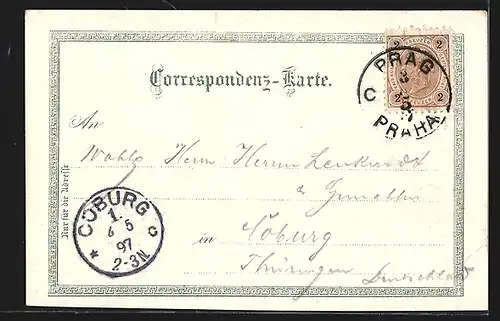 2 2
PRAG
3
5
97
C
PRAHA
2 2
Correspondenz-Karte.
An
Wohlg Herrn Herrn
& Gemahlin
in Coburg
Thüringen Deutschland
Nur für die Adresse
COBURG
1.
6 5
97
* 2-3N c